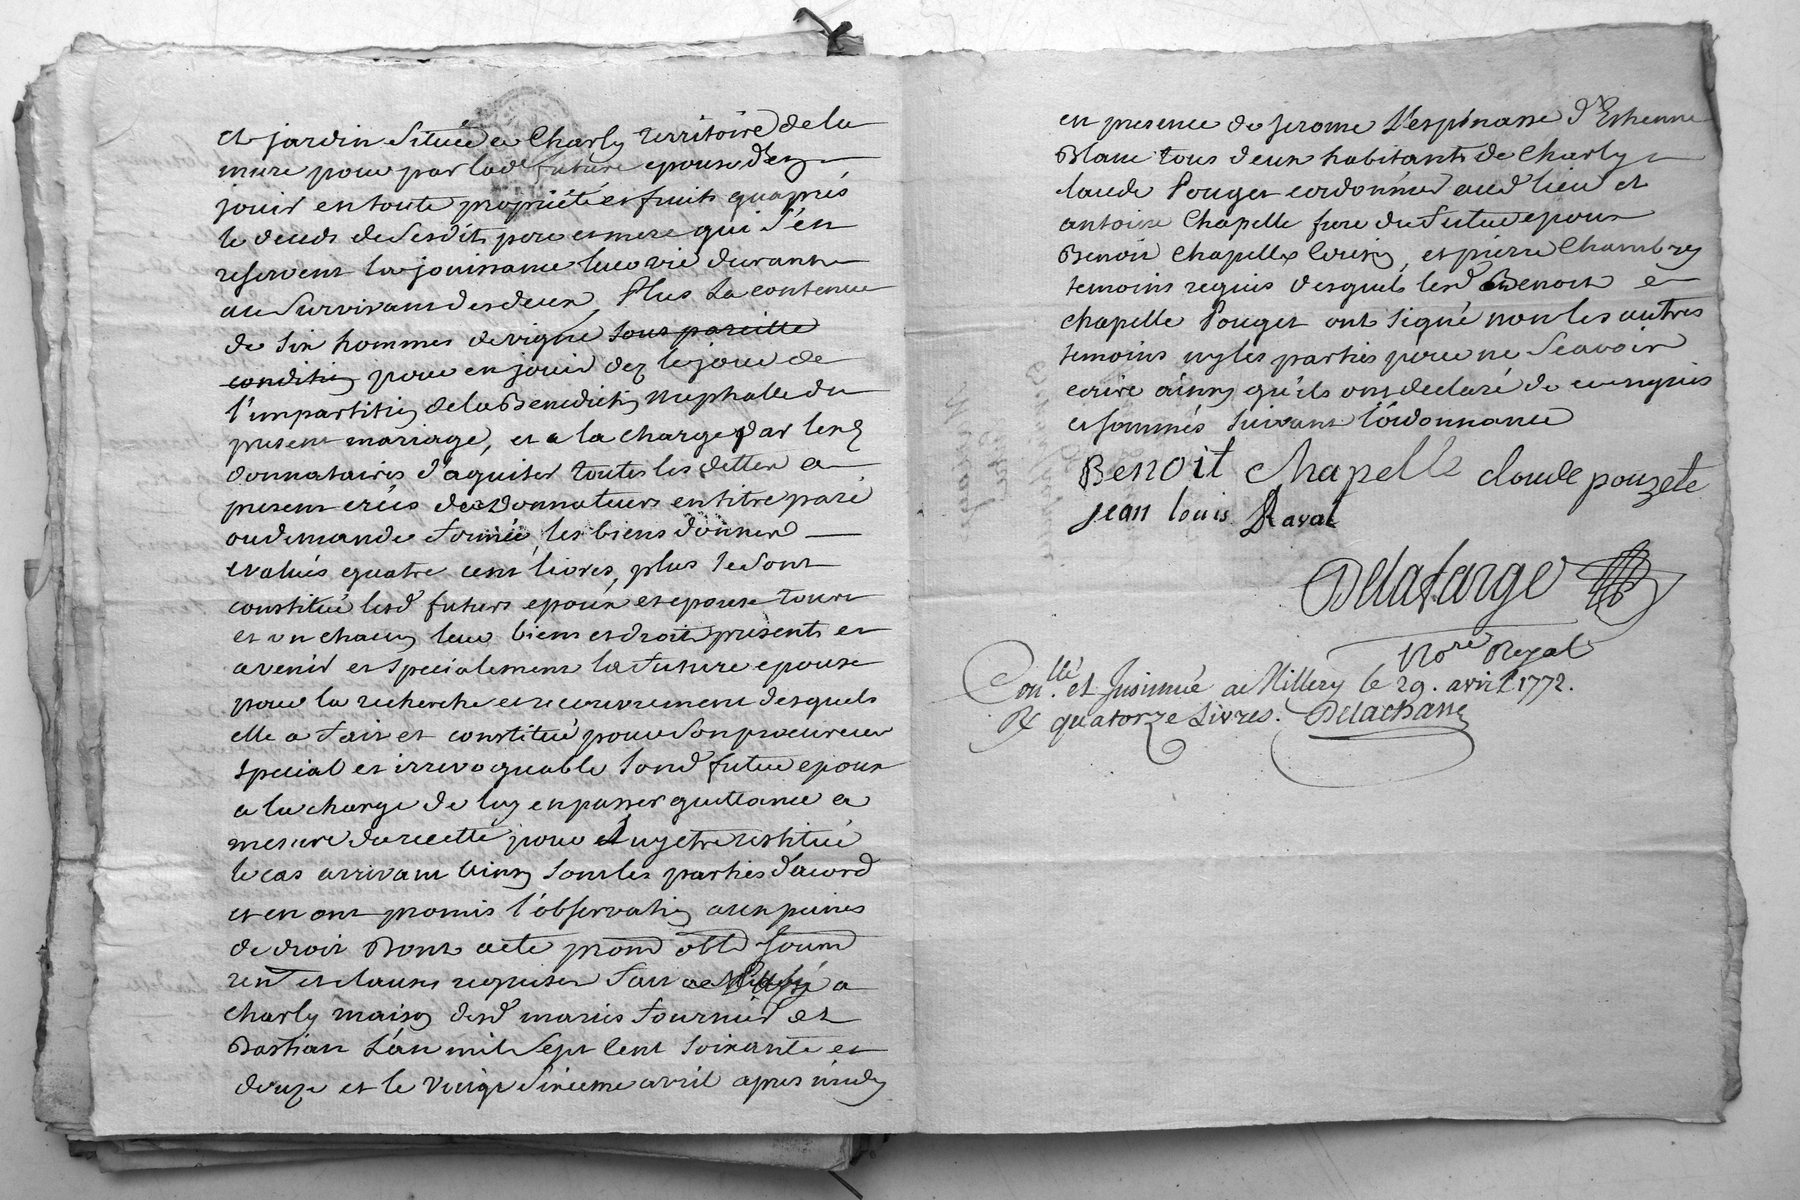 et jardin Situés a Charly territoire de la
mure pour par lad. future epouse d'en
jouir en toute proprieté et fruits qu'aprés
le deceds de Sesdits pere et mere qui S'en
reservent la jouissance leur vie durant
au Survivant des deux, Plus La contenue
de Six hommes de vigne sous pareille
condition pour en jouir dez le jour de
l'impartition de la Benediction nuptialle du
present mariage, et a la charge par lesd
donnataires d'aquiter toutes les dettes a
present créés des donnateurs en titre paré
ou demande formée, les biens donnés
evalués quatre cent livres, plus se Sont
constitué lesd. futurs epoux et epouse tous
et un chacun leur biens et droits presents et
avenir et specialement la future epouse
pour la recherche et recouvrement desquels
elle a fait et constitué pour Son procureur
special et irrevoquable Sond. futur epoux
a la charge de luy en passer quittance a
mesure de recette pour luy etre restitué
le cas arrivant ainsy Sont les parties d'acord
et en ont promis l'observation aux peines
de droit Dont acte prom obli Soum
ren et clauses requises fait a
charly maison desd. mariés fournier et
Bastian L'an mil Sept Cent Soixante et
douze et le vingt Sixieme avril apres midy
en presence de Jerome L'espinasse d'Estienne
Blanc tous deux habitants de Charly
laude Pouget cordonnier aud. lieu et
antoine Chapelle frere du futur epoux
Benoit Chapelle Cousin, et pierre Chambry
temoins requis desquels lesd. Benoit
chapelle Pouget ont signé non les autres
temoins ny les parties pour ne Scavoir
ecrire ainsy qu'ils ont declaré de ce enquis
et sommés suivant l'ordonnance
Benoit chapelle claude pouzete
jean louis Raval
Delafarge
No.re Royal
Con.llé et Insinué a Millery le 29. avril 1772.
R quatorze Livres. Delachasse